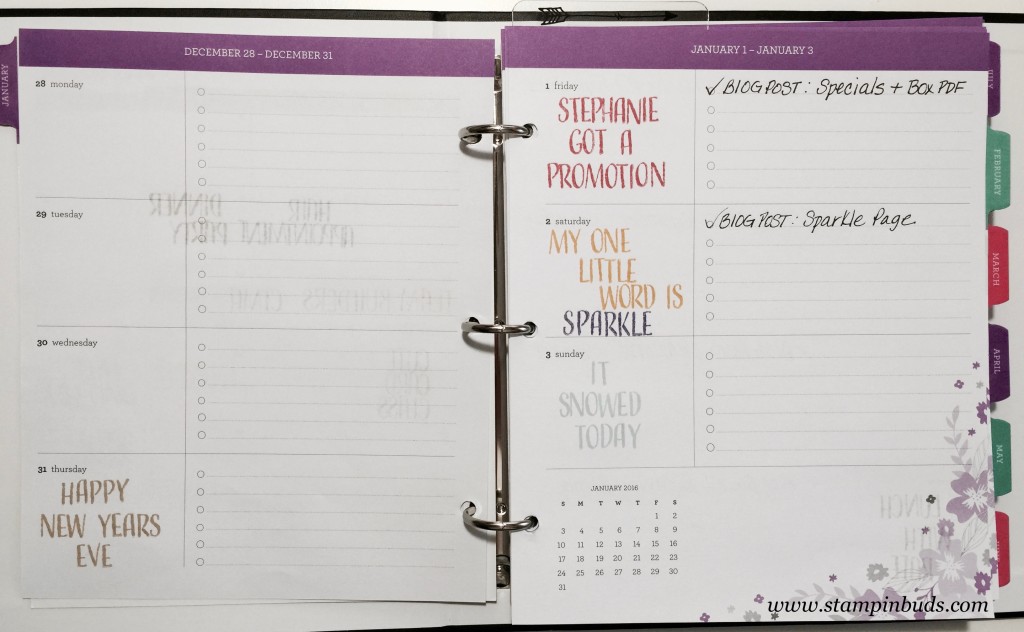 JANUARY
DECEMBER 28 – DECEMBER 31
28 monday
29 tuesday
30 wednesday
31 thursday
HAPPY
NEW YEARS
EVE
JANUARY 1 – JANUARY 3
1 friday
STEPHANIE
GOT A
PROMOTION
✓ BLOG POST: Specials + Box PDF
2 saturday
MY ONE
LITTLE
WORD IS
SPARKLE
✓ BLOG POST: Sparkle Page
3 sunday
IT
SNOWED
TODAY
JANUARY 2016
S M T W T F S
1 2
3 4 5 6 7 8 9
10 11 12 13 14 15 16
17 18 19 20 21 22 23
24 25 26 27 28 29 30
31
FEBRUARY
MARCH
APRIL
MAY
www.stampinbuds.com